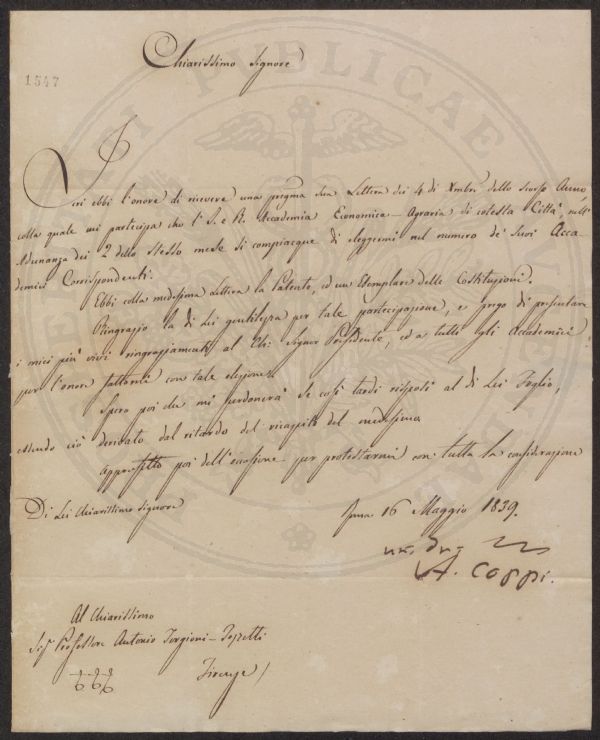 1547
Chiarissimo Signore
Ieri ebbi l'onore di ricevere una pregma sua Lettera dei 4 di Xmbre dello scorso Anno,
colla quale mi partecipa che l'I. e R. Accademia Economica-Agraria di cotesta Città, nell'
Adunanza dei 2 dello stesso mese si compiacque di eleggermi nel numero de' suoi Acca
demici Corrispondenti.
Ebbi colla medesima Lettera la Patente, ed un Esemplare delle Costituzioni.
Ringrazio la di Lei gentilezza per tale partecipazione, e prego di presentare
i miei più vivi ringraziamenti al Chi. Signor Presidente, ed a tutti gli Accademici
per l'onore fattomi con tale elezione.
Spero poi che mi perdonerà se così tardi risposi al di Lei Foglio,
essendo ciò derivato dal ritardo del ricapito del medesimo.
Approfitto poi dell'occasione per protestarmi con tutta la considerazione
Di Lei Chiarissimo Signore
16 Maggio 1839.
A. Coppi.
Al Chiarissimo
Sig. Professore Antonio Targioni-Tozzetti
Firenze